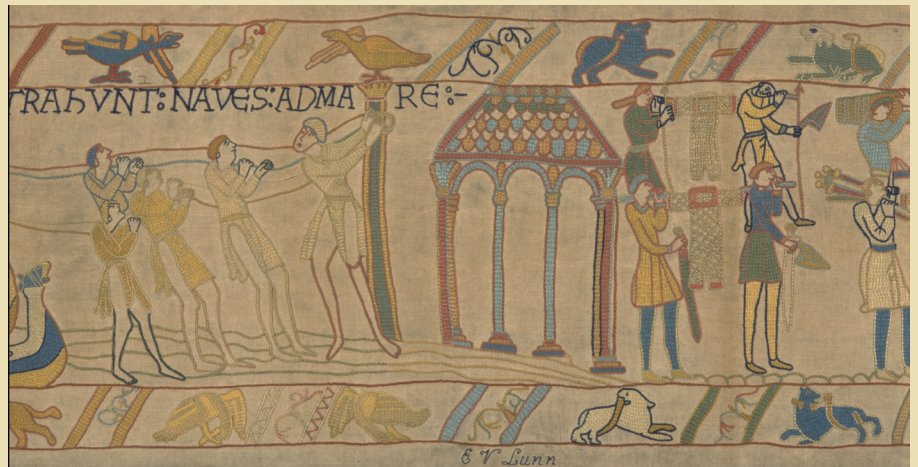 TRAhVNT:NAVES:ADMA RE:-
E V Lunn